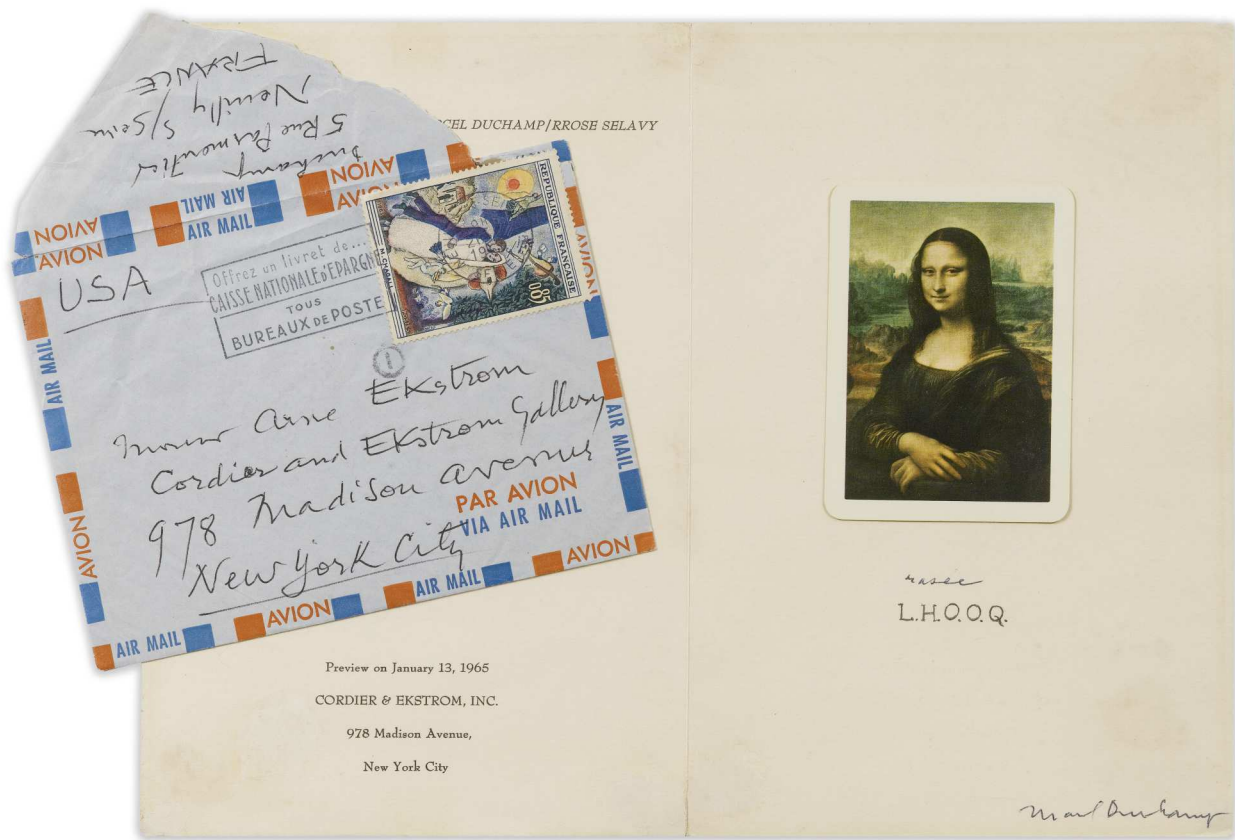 FRANCE
Neuilly S/Seine
5 Rue Parmentier
Duchamp
AVION
AIR MAIL
AVION
AVION
AIR MAIL
USA
Offrez un livret de...
CAISSE NATIONALE D'EPARGNE
TOUS
BUREAUX DE POSTE
REPUBLIQUE FRANÇAISE
0,85
M. CHAGALL
1
Arne Ekstrom
Cordier and Ekstrom Gallery
978 Madison Avenue
New York City
PAR AVION
VIA AIR MAIL
AIR MAIL
AVION
AIR MAIL
AVION
AIR MAIL
AVION
AIR MAIL
AVION
CEL DUCHAMP/RROSE SELAVY
Preview on January 13, 1965
CORDIER & EKSTROM, INC.
978 Madison Avenue,
New York City
rasée
L.H.O.O.Q.
Marcel Duchamp